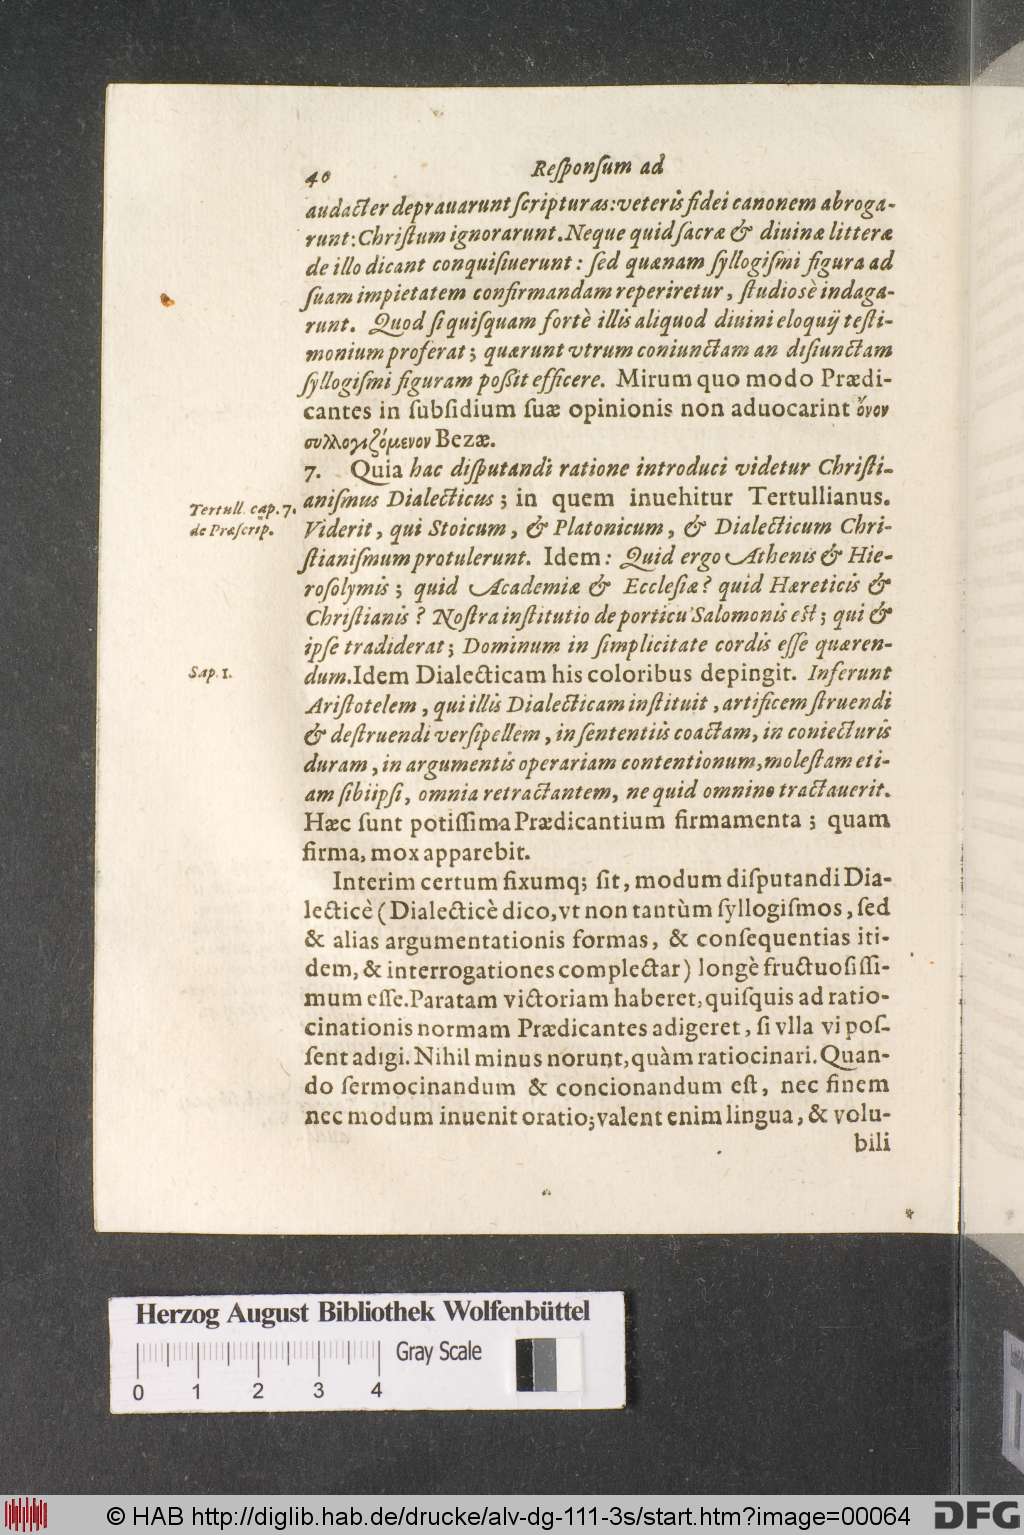 40 Reſponſum ad
audacter deprauarunt ſcripturas: veteris fidei canonem abroga-
runt: Chriſtum ignorarunt. Neque quid ſacræ & diuinæ litteræ
de illo dicant conquiſiuerunt: ſed quænam ſyllogiſmi figura ad
ſuam impietatem confirmandam reperiretur, ſtudiosè indaga-
runt. Quod ſi quiſquam fortè illis aliquod diuini eloquij teſti-
monium proferat; quærunt vtrum coniunctam an disiunctam
ſyllogiſmi figuram poßit efficere. Mirum quo modo Prædi-
cantes in ſubſidium ſuæ opinionis non aduocarint ὄνον
συλλογιζόμενον Bezæ.
7. Quia hac diſputandi ratione introduci videtur Chriſti-
aniſmus Dialecticus; in quem inuehitur Tertullianus.
Tertull. cap. 7.
de Præſcrip.
Viderit, qui Stoicum, & Platonicum, & Dialecticum Chri-
ſtianiſmum protulerunt. Idem: Quid ergo Athenis & Hie-
roſolymis; quid Academiæ & Eccleſiæ? quid Hæreticis &
Chriſtianis? Noſtra inſtitutio de porticu Salomonis eſt; qui &
ipſe tradiderat; Dominum in ſimplicitate cordis eſſe quæren-
Sap. 1.
dum. Idem Dialecticam his coloribus depingit. Inferunt
Ariſtotelem, qui illis Dialecticam inſtituit, artificem ſtruendi
& deſtruendi verſipellem, in ſententiis coactam, in coniecturis
duram, in argumentis operariam contentionum, moleſtam eti-
am ſibi ipſi, omnia retractantem, ne quid omnino tractauerit.
Hæc ſunt potiſſima Prædicantium firmamenta; quam
firma, mox apparebit.
Interim certum fixumq; ſit, modum diſputandi Dia-
lecticè (Dialecticè dico, vt non tantùm ſyllogiſmos, ſed
& alias argumentationis formas, & conſequentias iti-
dem, & interrogationes complectar) longè fructuoſiſſi-
mum eſſe. Paratam victoriam haberet, quiſquis ad ratio-
cinationis normam Prædicantes adigeret, ſi vlla vi poſ-
ſent adigi. Nihil minus norunt, quàm ratiocinari. Quan-
do ſermocinandum & concionandum eſt, nec finem
nec modum inuenit oratio; valent enim lingua, & volu-
bili
Herzog August Bibliothek Wolfenbüttel
Gray Scale
0 1 2 3 4
© HAB http://diglib.hab.de/drucke/alv-dg-111-3s/start.htm?image=00064
DFG